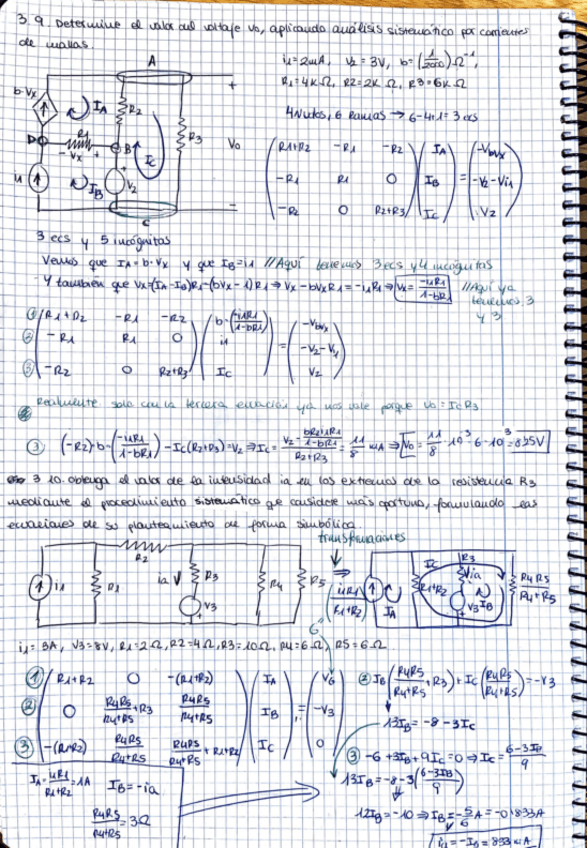 3.9. Determine el valor del voltaje Vo, aplicando análisis sistemático por corrientes
de mallas.
A
i1 = 2mA, V2 = 3V, b = (1/2000) Ω⁻¹,
R1 = 4K Ω, R2 = 2K Ω, R3 = 6K Ω
4 Nudos, 6 Ramas → 6-4+1 = 3 ecs
b·Vx
IA
R2
+
R3
D
R1
B
- Vx +
Ic
Vo
i1
IB
V2
+
-
C
R1+R2 -R1 -R2 IA -Vbvx
-R1 R1 0 IB = -V2-Vi1
-R2 0 R2+R3 Ic V2
3 ecs y 5 incógnitas
Vemos que IA = b·Vx y que IB = i1 //Aquí tenemos 3 ecs y 4 incógnitas
Y también que Vx = (IA-IB)R1 = (bVx - i1) R1 ⇒ Vx - bVxR1 = -i1R1 ⇒ Vx = -i1R1/1-bR1 //Aquí ya
tenemos 3
y 3
① R1+R2 -R1 -R2 b·(-i1R1/1-bR1) -Vbvx
② -R1 R1 0 i1 = -V2-Vi1
③ -R2 0 R2+R3 Ic V2
Realmente solo con la tercera ecuación ya nos vale porque Vo = Ic R3
③ (-R2)·b·(-i1R1/1-bR1) - Ic(R2+R3) = V2 ⇒ Ic = = 11/8 mA ⇒ Vo = 11/8 · 10⁻³ · 6 · 10³ = 8'25V
3.10. obtenga el valor de la intensidad ia en los extremos de la resistencia R3
mediante el procedimiento sistemático que considere más oportuno, formulando las
ecuaciones de su planteamiento de forma simbólica.
transformaciones
R2
i1
R1
ia
R3
V3
+
R4
R5
⇒
i1R1/R1+R2
IA
R1+R2
Ic
R3
ia
V3
IB
+
R4R5/R4+R5
i1 = 3A, V3 = 8V, R1 = 2Ω, R2 = 4Ω, R3 = 10Ω, R4 = 6Ω, R5 = 6Ω
① R1+R2 0 -(R1+R2) IA V6
② 0 R4R5/R4+R5 + R3 R4R5/R4+R5 IB = -V3
③ -(R1+R2) R4R5/R4+R5 R4R5/R4+R5 + R1+R2 Ic 0
② IB(R4R5/R4+R5 + R3) + Ic(R4R5/R4+R5) = -V3
13IB = -8 - 3Ic
③ -6 + 3IB + 9Ic = 0 ⇒ Ic = 6-3IB/9
13IB = -8 - 3(6-3IB/9)
12IB = -10 ⇒ IB = -5/6 A = -0'833A
IA = i1R1/R1+R2 = 1A IB = -ia
R4R5/R4+R5 = 3Ω
= -IB = 833mA